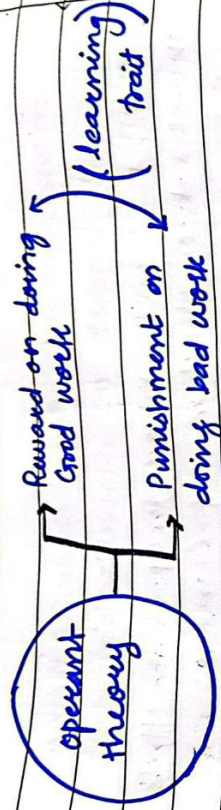 operant
theory
Reward on doing
Good work
Punishment on
doing bad work
(learning)
(trait)